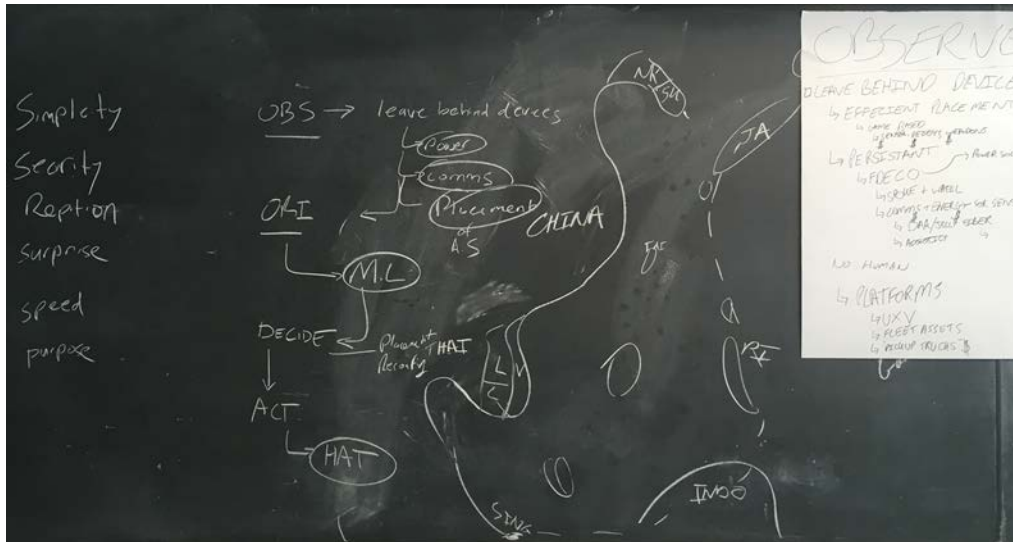 Simplety
Secrity
Reption
surprise
speed
purpose
OBS → leave behind devices
Power
Comms
Placement
of
A.S
ORI
M.L
DECIDE
Placement
ACT
HAT
NK
SK
JA
CHINA
HAI
L
V
SING
INDO
OBSERVE
LEAVE BEHIND DEVICE
↳ EFFICIENT PLACEMENT
↳ PERSISTANT
↳ FDECO
→ POWER
↳ SPOKE + WHEEL
↳ COMMS + ENERGY FOR SENS
NO HUMAN
↳ PLATFORMS
↳ UXV
↳ FLEET ASSETS
↳ PICKUP TRUCKS